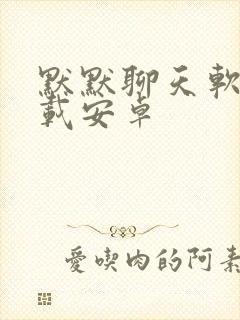 默默聊天軟
載安卓
愛喫肉的阿素